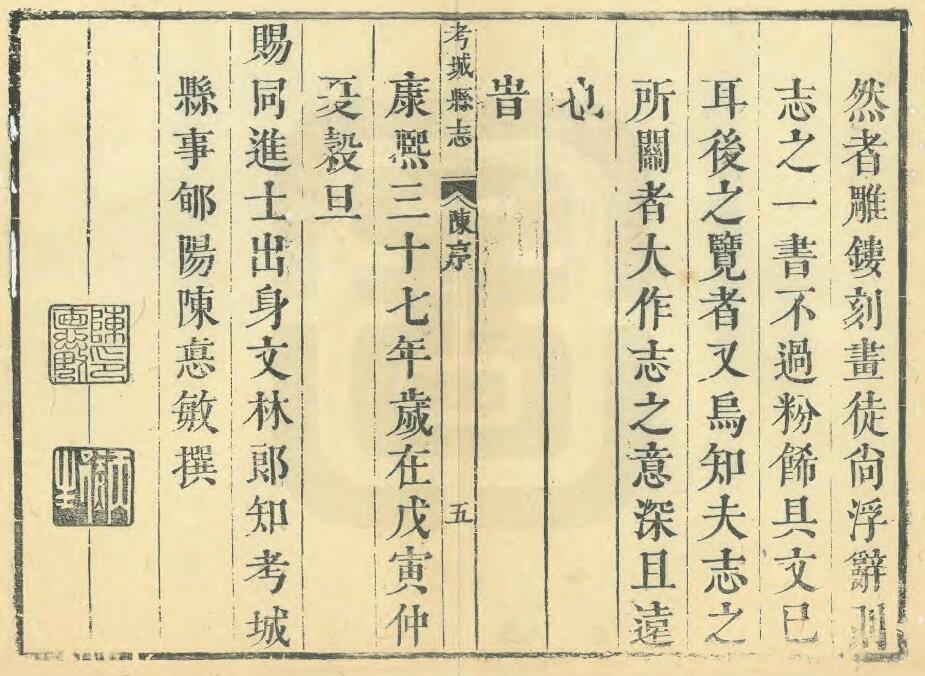 然者雕鏤刻畫徒尙浮辭則
志之一書不過粉餙具文已
耳後之覽者又烏知夫志之
所關者大作志之意深且遠
也
旹
考城縣志 陳序 五
康熙三十七年歲在戊寅仲
夏穀旦
賜同進士出身文林郎知考城
縣事郇陽陳悳敏撰
陳印悳敏